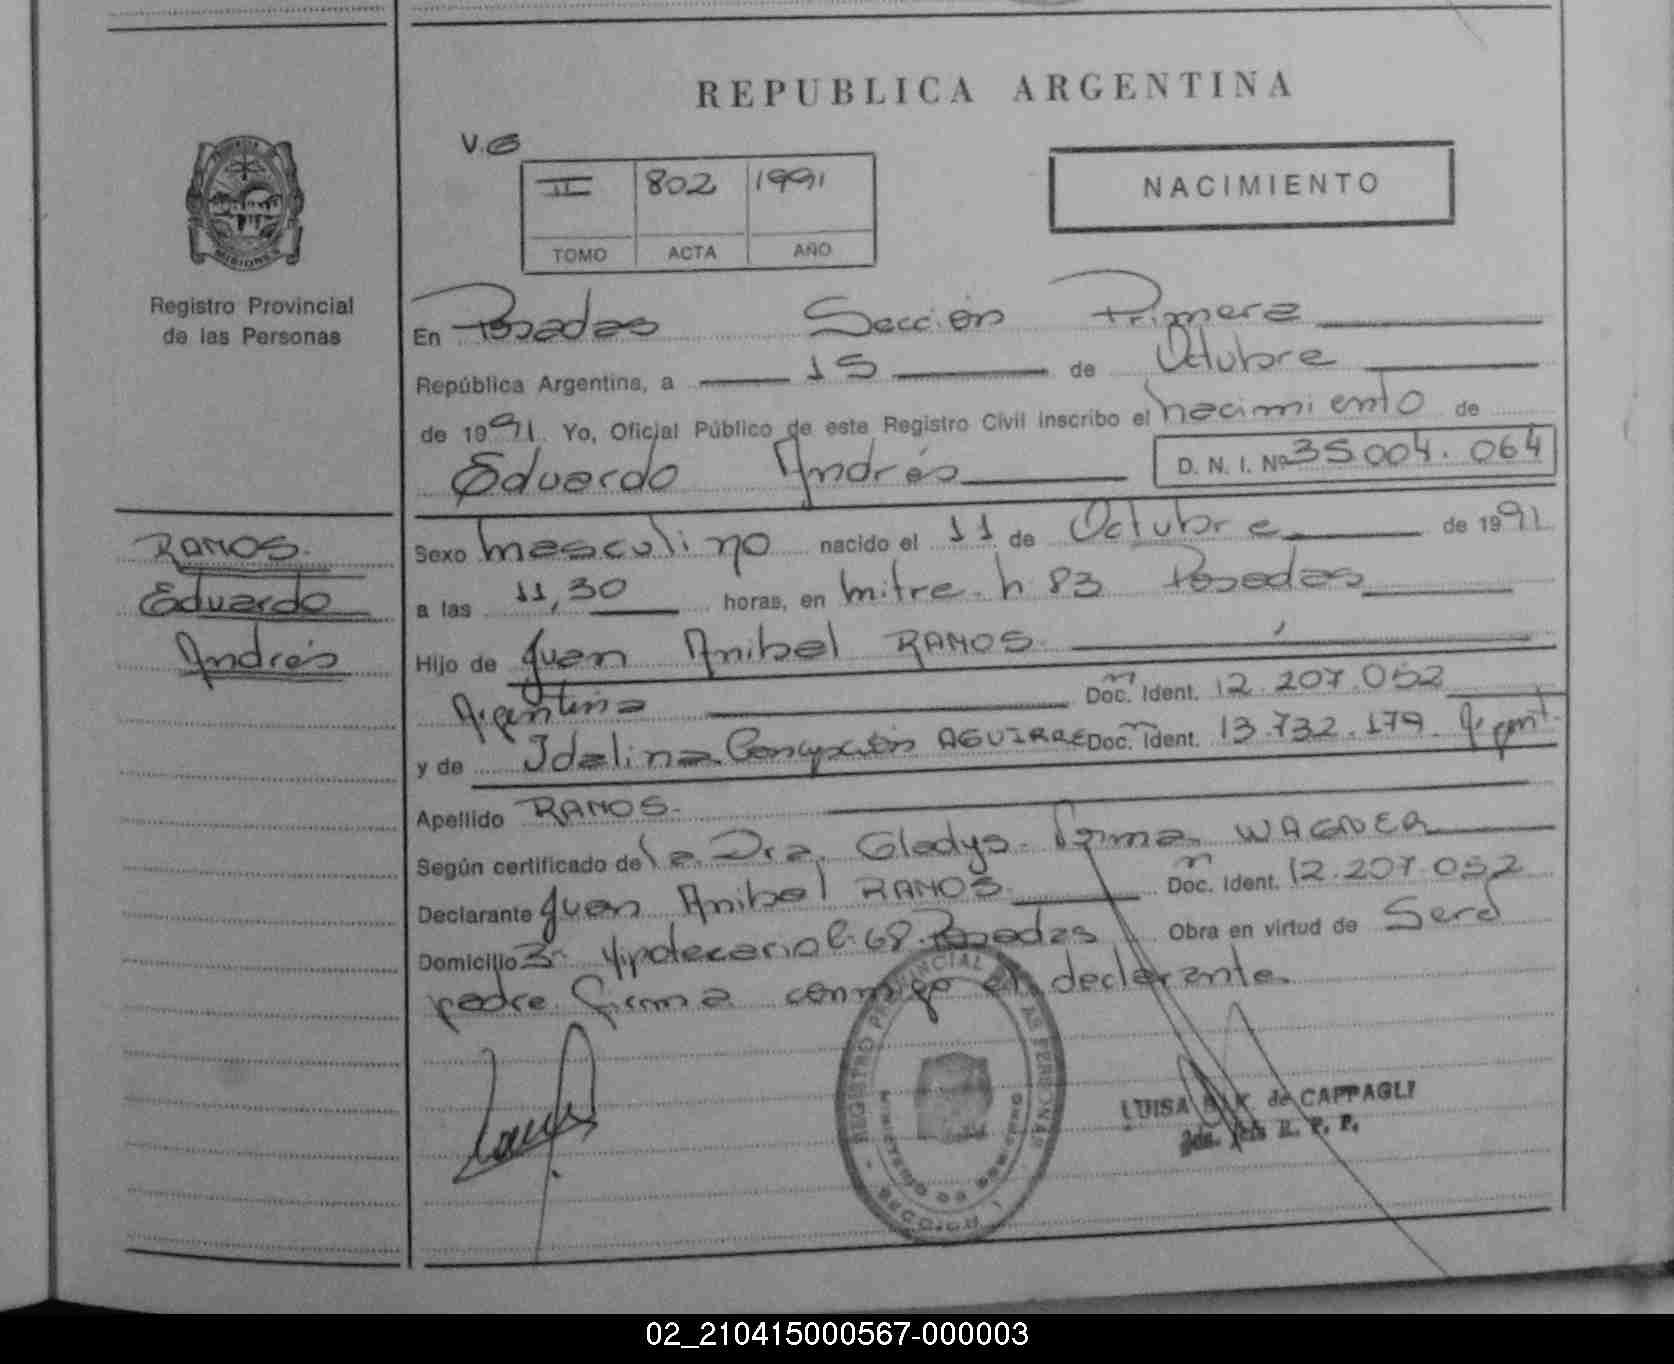 REPUBLICA ARGENTINA
V.G
II 802 1991
TOMO ACTA AÑO
NACIMIENTO
PROVINCIA
MISIONES
Registro Provincial
de las Personas
En Posadas Sección Primera
República Argentina, a 15 de Octubre
de 1991. Yo, Oficial Público de este Registro Civil inscribo el nacimiento de
Eduardo Andrés D. N. I. Nº 35.004.064
RAMOS.
Eduardo
Andrés
Sexo masculino nacido el 11 de Octubre de 1991
a las 11,30 horas, en mitre. h 83 Posadas
Hijo de Juan Anibal RAMOS.
Argentina Doc. Ident. 12.207.052
y de Idalina Concepción AGUIRRE Doc. Ident. 13.732.179. Argent.
Apellido RAMOS.
Según certificado de la Dra. Gladys WAGNER
Declarante Juan Anibal RAMOS. Doc. Ident. 12.207.052
Domicilio Hipotecario C. 68. Posadas Obra en virtud de Ser el
padre. firma conmigo el declarante.
REGISTRO PROVINCIAL DE LAS PERSONAS
MINISTERIO DE GOBIERNO
SECCION 1
LUISA de CAPPAGLI
R. P. P.
02_210415000567-000003